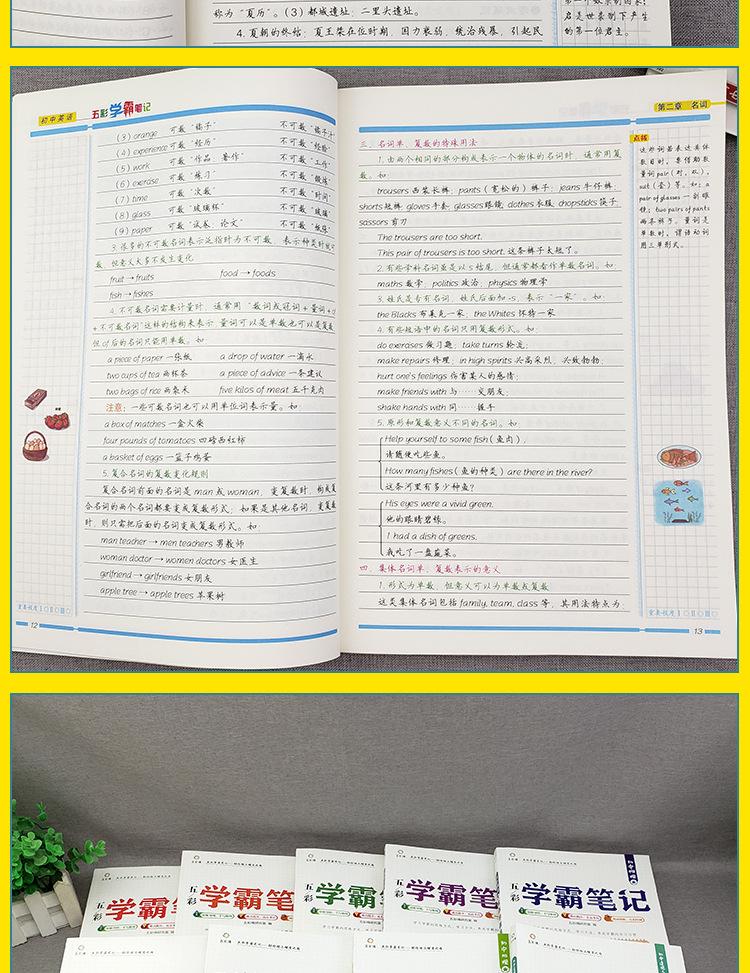 称为“夏历”。(3) 都城遗址：二里头遗址。
4. 夏朝的终结：夏王桀在位时期，国力衰弱，统治残暴，引起民
君是世袭制下产生
的第一位君主。
初中英语 五彩学霸笔记
(3) orange 可数“橘子” 不可数“橘子汁”
(4) experience 可数“经历” 不可数“经验”
(5) work 可数“作品、著作” 不可数“工作”
(6) exercise 可数“练习” 不可数“锻炼”
(7) time 可数“次数” 不可数“时间”
(8) glass 可数“玻璃杯” 不可数“玻璃”
(9) paper 可数“试卷、论文” 不可数“纸张”
3. 很多的不可数名词表示泛指时为不可数，表示种类时就可
数，但意义大多不发生变化
fruit → fruits food → foods
fish → fishes
4. 不可数名词需要计量时，通常用“数词或冠词 + 量词 + of
+ 不可数名词”这样的结构来表示 量词可以是单数也可以是复数
但 of 后的名词只能用单数。如
a piece of paper 一张纸 a drop of water 一滴水
two cups of tea 两杯茶 a piece of advice 一条建议
two bags of rice 两袋米 five kilos of meat 五千克肉
注意：一些可数名词也可以用单位词表示量。如
a box of matches 一盒火柴
four pounds of tomatoes 四磅西红柿
a basket of eggs 一篮子鸡蛋
5. 复合名词的复数变化规则
复合名词前面的名词是 man 或 woman，变复数时，构成复
合名词的两个名词都要变成复数形式；如果是其他名词，变复数
时，则只需把后面的名词变成复数形式。如
man teacher → men teachers 男教师
woman doctor → women doctors 女医生
girlfriend → girlfriends 女朋友
apple tree → apple trees 苹果树
重要程度 Ⅰ Ⅱ Ⅲ
12
第二章 名词
三、名词单、复数的特殊用法
1. 由两个相同的部分构成表示一个物体的名词时，通常用复
数。如
trousers 西装长裤；pants（宽松的）裤子；jeans 牛仔裤；
shorts 短裤 gloves 手套 glasses 眼镜 clothes 衣服 chopsticks 筷子
scissors 剪刀
The trousers are too short.
This pair of trousers is too short. 这条裤子太短了。
2. 有些学科名词虽是以 s 结尾，但通常都看作单数名词。如：
maths 数学；politics 政治；physics 物理学
3. 姓氏是专有名词，姓氏后面加 -s，表示“一家”。如：
the Blacks 布莱克一家；the Whites 怀特一家
4. 有些短语中的名词只用复数形式。如：
do exercises 做习题；take turns 轮流；
make repairs 修理；in high spirits 兴高采烈，兴致勃勃；
hurt one's feelings 伤害某人的感情；
make friends with 与……交朋友；
shake hands with 同……握手
5. 原形和复数意义不同的名词。如：
Help yourself to some fish（鱼肉）.
请随便吃些鱼。
How many fishes（鱼的种类）are there in the river?
这条河里有多少种鱼？
His eyes were a vivid green.
他的眼睛碧绿。
I had a dish of greens.
我吃了一盘蔬菜。
四、集体名词单、复数表示的意义
1. 形式为单数，但意义可以为单数或复数
这类集体名词包括 family, team, class 等，其用法特点为：
点拨
这些词若表达具体
数目时，要借助数
量词 pair（对，双），
suit（套）等。如：a
pair of glasses 一副眼
镜；two pairs of pants
两条裤子。量词是
单数时，谓语动词
用三单形式。
重要程度 Ⅰ Ⅱ Ⅲ
13
五彩 学霸笔
五彩 学霸笔
五彩 学霸笔
五彩 学霸笔
五彩 学霸笔记
初中地理